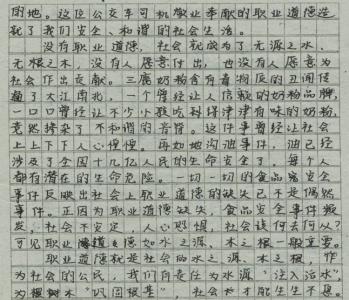 的地。这位公交车司机敬业奉献的职业道德造
就了我们安全、和谐的社会生活。
没有职业道德，社会就成为了无源之水、
无根之木，没有人愿意付出，也没有人愿意为
社会作出贡献。三鹿奶粉含有毒物质的丑闻传
遍了大江南北，一个曾经让人信赖的奶粉品牌，
一口口曾经让不少小孩吃得津津有味的奶粉，
竟然掺杂了不和谐的音符。这件事曾经让社会
上上下下人心惶惶。再如地沟油事件，油已经
涉及了全国十几亿人民的生命安全了，每个人
都有潜在的生命危险。一切一切的食品安全
事件反映出社会上职业道德的缺失已不是偶然
事件。正因为职业道德缺失，食品安全事件频
发，社会不安定，人心恐惧，社会该何去何从？
可见职业道德如水之源、木之根一般重要。
职业道德就是社会的水之源、木之根，作
为社会的公民，我们有责任为水源"注入活水"，
为树木"巩固根基"，社会才能生生不息。